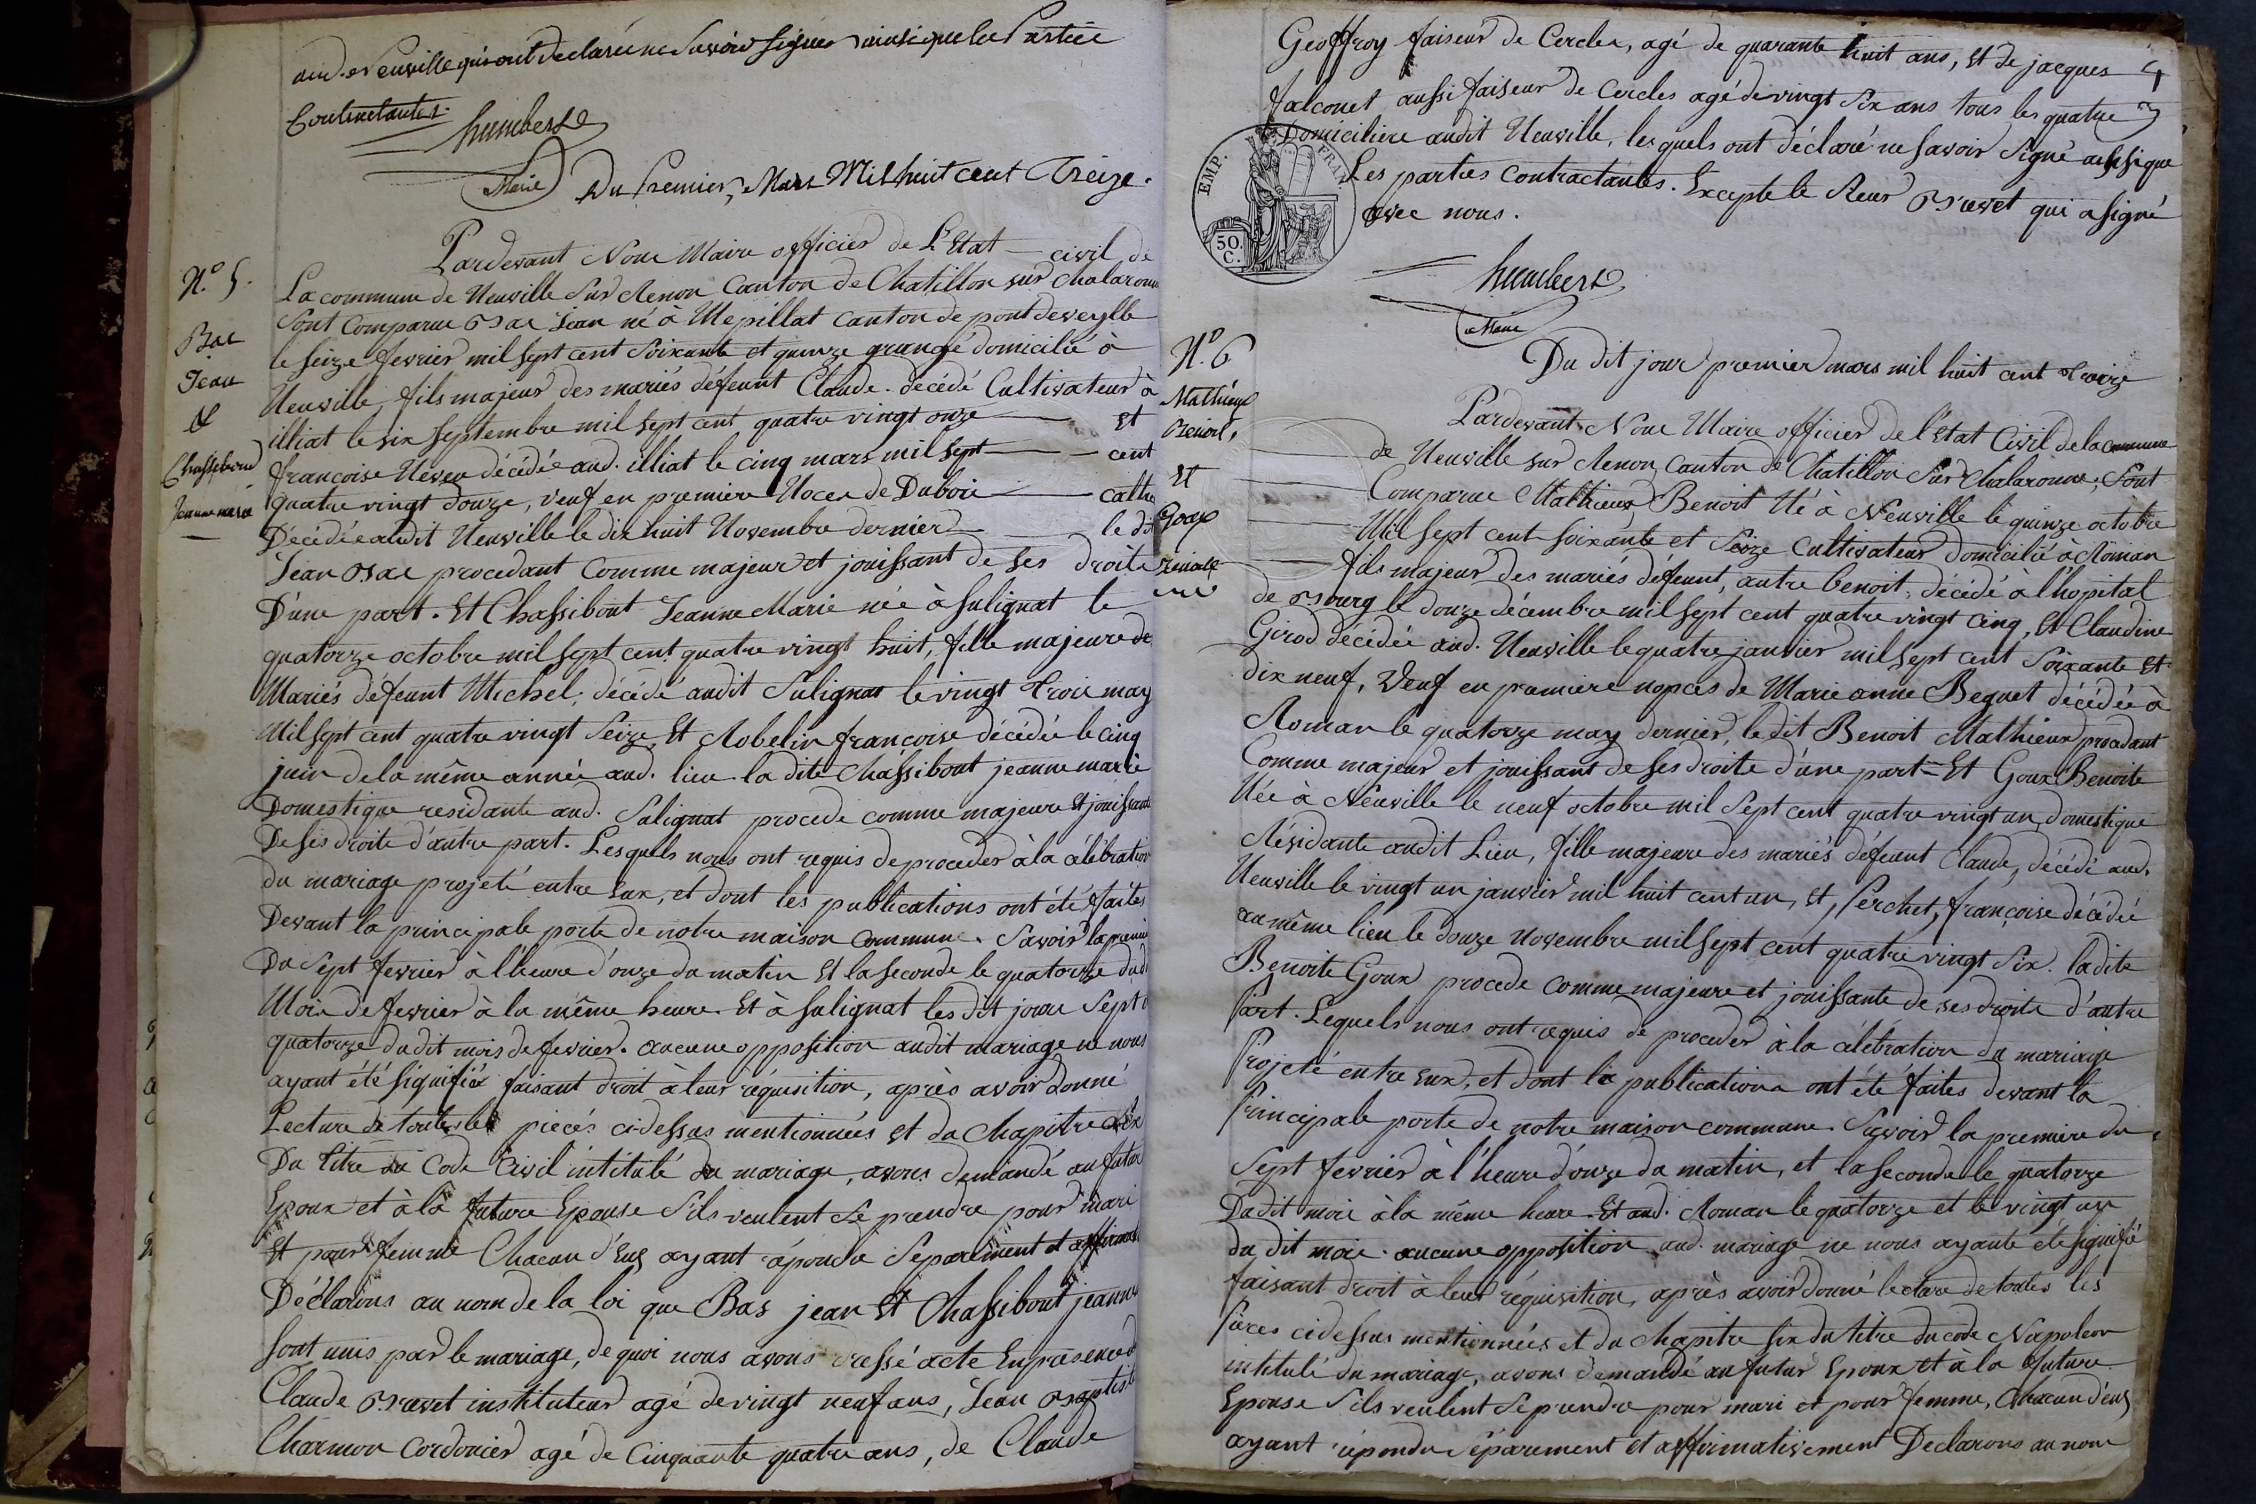 aud. Neuville qui ont déclaré ne Savoir Signer ainsi que les Parties
Contractantes.
humbert
Maire
Du Premier, Mars Mil huit cent Treize.
N.º 5.
Bac
Jean
&
Chassibout
Jeanne marie
Pardevant Nous Maire officier de L'Etat civil de
La commune de Neuville Sur Renon Canton de Chatillon sur Chalaronne
Sont Comparue Bac Jean né à Mepillat canton de pont de veylle
le Seize fevrier mil Sept cent Soixante et quinze grangé domicilié à
Neuville, fils majeur des mariés défeunt Claude. décédé Cultivateur à
illiat le six Septembre mil Sept cent quatre vingt onze Et
françoise Neveu décédée aud. illiat le cinq mars mil Sept cent
quatre vingt douze, veuf en premiere Noces de Duboie cathe
Décédée audit Neuville le dix huit Novembre dernier le di
Jean Bac procedant Comme majeur et jouissant de ses droite
D'une part. Et Chassibout Jeanne Marie née à Sulignat le
quatorze octobre mil Sept cent quatre vingt huit, fille majeure de
Mariés défeunt Michel, décédé audit Sulignat le vingt trois may
Mil Sept cent quatre vingt Seize, Et Robelin françoise décédée le cinq
juin de la même année aud. lieu. la dite Chassibout jeanne marie
Domestique residante aud. Salignat procede comme majeure et jouissante
De ses droite d'autre part. Lesquels nous ont requis de proceder à la célébration
du mariage projeté entre Eux, et dont les publications ont été faites
Devant la principale porte de notre maison Commune. Savoir la premie
Du Sept fevrier à l'heure d'onze du matin Et la Seconde le quatorze dud
Mois de fevrier à la même heure. Et à Sulignat les dit jour Sept
quatorze dudit mois de fevrier. aucune opposition audit mariage ne nous
ayant été Signifiée faisant droit à leur réquisition, après avoir donné
Lecture de toutes les pieces cidessus mentionnées et du Chapitre Six
Du Titre du Code Civil intitulé Du mariage, avons demandé au futur
Epoux et à la future Epouse S'ils veulent Se prendre pour mari
Et pour femme Chacun d'Eux ayant répondu Separément et affirmat
Déclarons au nom de la loi que Bas jean Et Chassibout jeanne
Sont unis par le mariage, de quoi nous avons dressé acte En présence d
Claude Bravet instituteur agé de vingt neuf ans, Jean Baptiste
Charmon Cordonier agé de Cinquante quatre ans, de Claude
Geoffroy faiseur de Cercles, agé de quarante huit ans, Et de jacques
falconet aussi faiseur de Cercles agé de vingt Six ans tous les quatre
Domiciliere audit Neuville, lesquels ont déclaré ne Savoir Signé ainsi que
Les parties Contractantes. Excepte le Sieur Bravet qui a Signé
avec nous.
EMP. FRAN.
50.
C.
humbert
Maire
N.º 6
Mathieux
Benoit,
Et
Goux
Benoite
Du dit jour premier mars mil huit cent treize
Pardevant Nous Maire officier de l'Etat Civil de la commune
de Neuville sur Renon, Canton de Chatillon Sur Chalaronne, Sont
Comparue Mathieux Benoit Né à Neuville le quinze octobre
Mil Sept cent Soixante et Seize Cultivateur domicilié à Roman
fils majeur des mariés défeunt, autre benoit, décédé à l'hopital
de Bourg le douze décembre mil Sept cent quatre vingt cinq, Et Claudine
Girod décédée aud. Neuville le quatre janvier mil Sept cent Soixante et
dix neuf, Veuf en premiere nopces de Marie anne Beguet décédée à
Roman le quatorze may dernier, le dit Benoit Mathieux procedant
Comme majeur et jouissant de Ses droite d'une part Et Goux Benoite
Née à Neuville le neuf octobre mil Sept cent quatre vingt un, domestique
Résidante audit Lieu, fille majeure des mariés défeunt Claude, décédé aud.
Neuville le vingt un janvier mil huit cent un, Et, Perchet, françoise décédée
au même lieu le douze Novembre mil Sept cent quatre vingt Six. ladite
Benoite Goux procede Comme majeure et jouissante de ses droite d'autre
Part. Lequels nous ont requis de proceder à la célébration du mariage
Projeté entre Eux, et dont le publications ont été faites devant la
Principale porte de notre maison commune. Savoir la premiere du
Sept fevrier à l'heure d'onze du matin, et la Seconde le quatorze
Dudit mois à la même heure. Et aud. Roman le quatorze et le vingt un
du dit mois. aucune opposition aud. mariage ne nous ayante été signifié
faisant droit à leur réquisition, après avoir donné lecture de toutes les
Pieces cidessus mentionnées et du Chapitre Six du titre du code Napoleon
intitulé du mariage, avons demandé au futur Epoux et à la future
Epouse S'ils veulent Se prendre pour mari et pour femme, Chacun d'eux
ayant répondu Séparement et affirmativement Declarons au nom